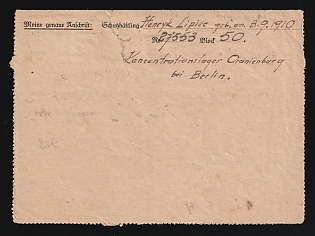 Meine genaue Anschrift: Schutzhäftling Henryk Lipiec geb. am 3.9.1910
Nr. 27553 Block 50.
Konzentrationslager Oranienburg
bei Berlin.